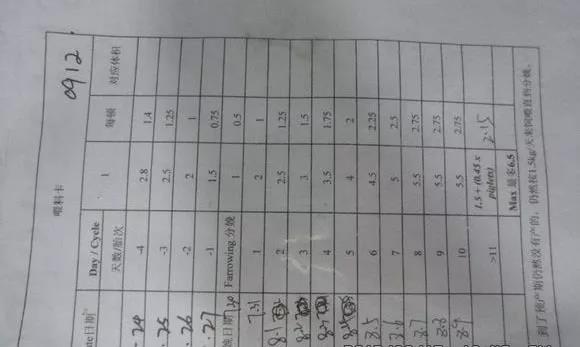 喂料卡 0912
ate日期 Day / Cycle 天数/胎次 1 每顿 对应体积
24 -4 2.8 1.4
25 -3 2.5 1.25
26 -2 2 1
27 -1 1.5 0.75
娩日期 7.30 Farrowing 分娩 1 0.5
7.31 1 2 1
8.1 2 2.5 1.25
8.2 3 3 1.5
4 3.5 1.75
5 4 2
8.5 6 4.5 2.25
8.6 7 5 2.5
8.7 8 5.5 2.75
8.8 9 5.5 2.75
8.9 10 5.5 2.75
>11 1.5 + (0.45 x piglets)
Max 最多6.5
到了预产期仍然没有产的，仍然按1.5kg/天来饲喂直到分娩。